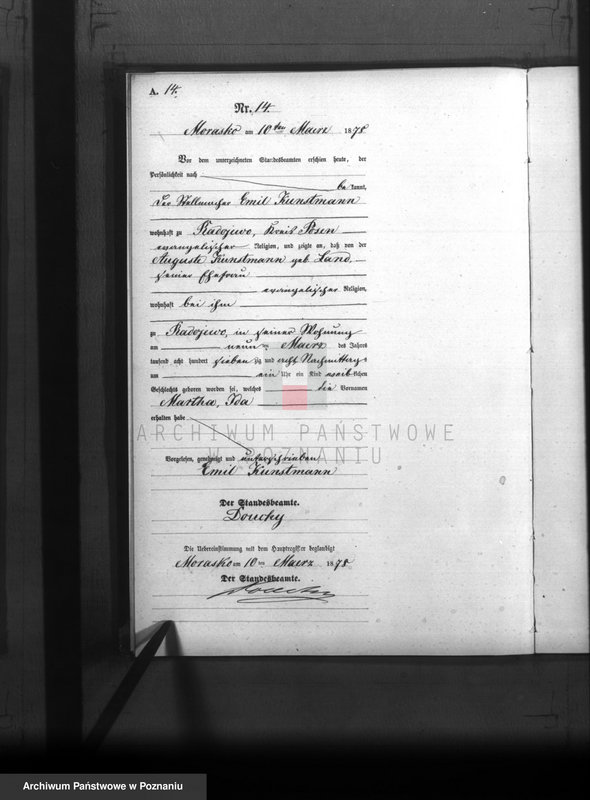 A. 14.
Nr. 14.
Morasko am 10ten Maerz 1878
Vor dem unterzeichneten Standesbeamten erschien heute, der
Persönlichkeit nach
bekannt,
Der Stellmacher Emil Kunstmann
wohnhaft zu Radojewo, Kreis Posen
evangelischer Religion, und zeigte an, daß von der
Auguste Kunstmann geb. Land,
seiner Ehefrau
evangelischer Religion,
wohnhaft bei ihm
zu Radojewo, in seiner Wohnung
am neun ten Maerz des Jahres
tausend acht hundert siebenzig und acht Nachmittags
um ein Uhr ein Kind weiblichen
Geschlechts geboren worden sei, welches die Vornamen
Martha, Ida
erhalten habe
Vorgelesen, genehmigt und unterschrieben
Emil Kunstmann
Der Standesbeamte.
Die Uebereinstimmung mit dem Hauptregister beglaubigt
Morasko am 10ten Maerz 1878
Der Standesbeamte.
ARCHIWUM PAŃSTWOWE
W POZNANIU
Archiwum Państwowe w Poznaniu